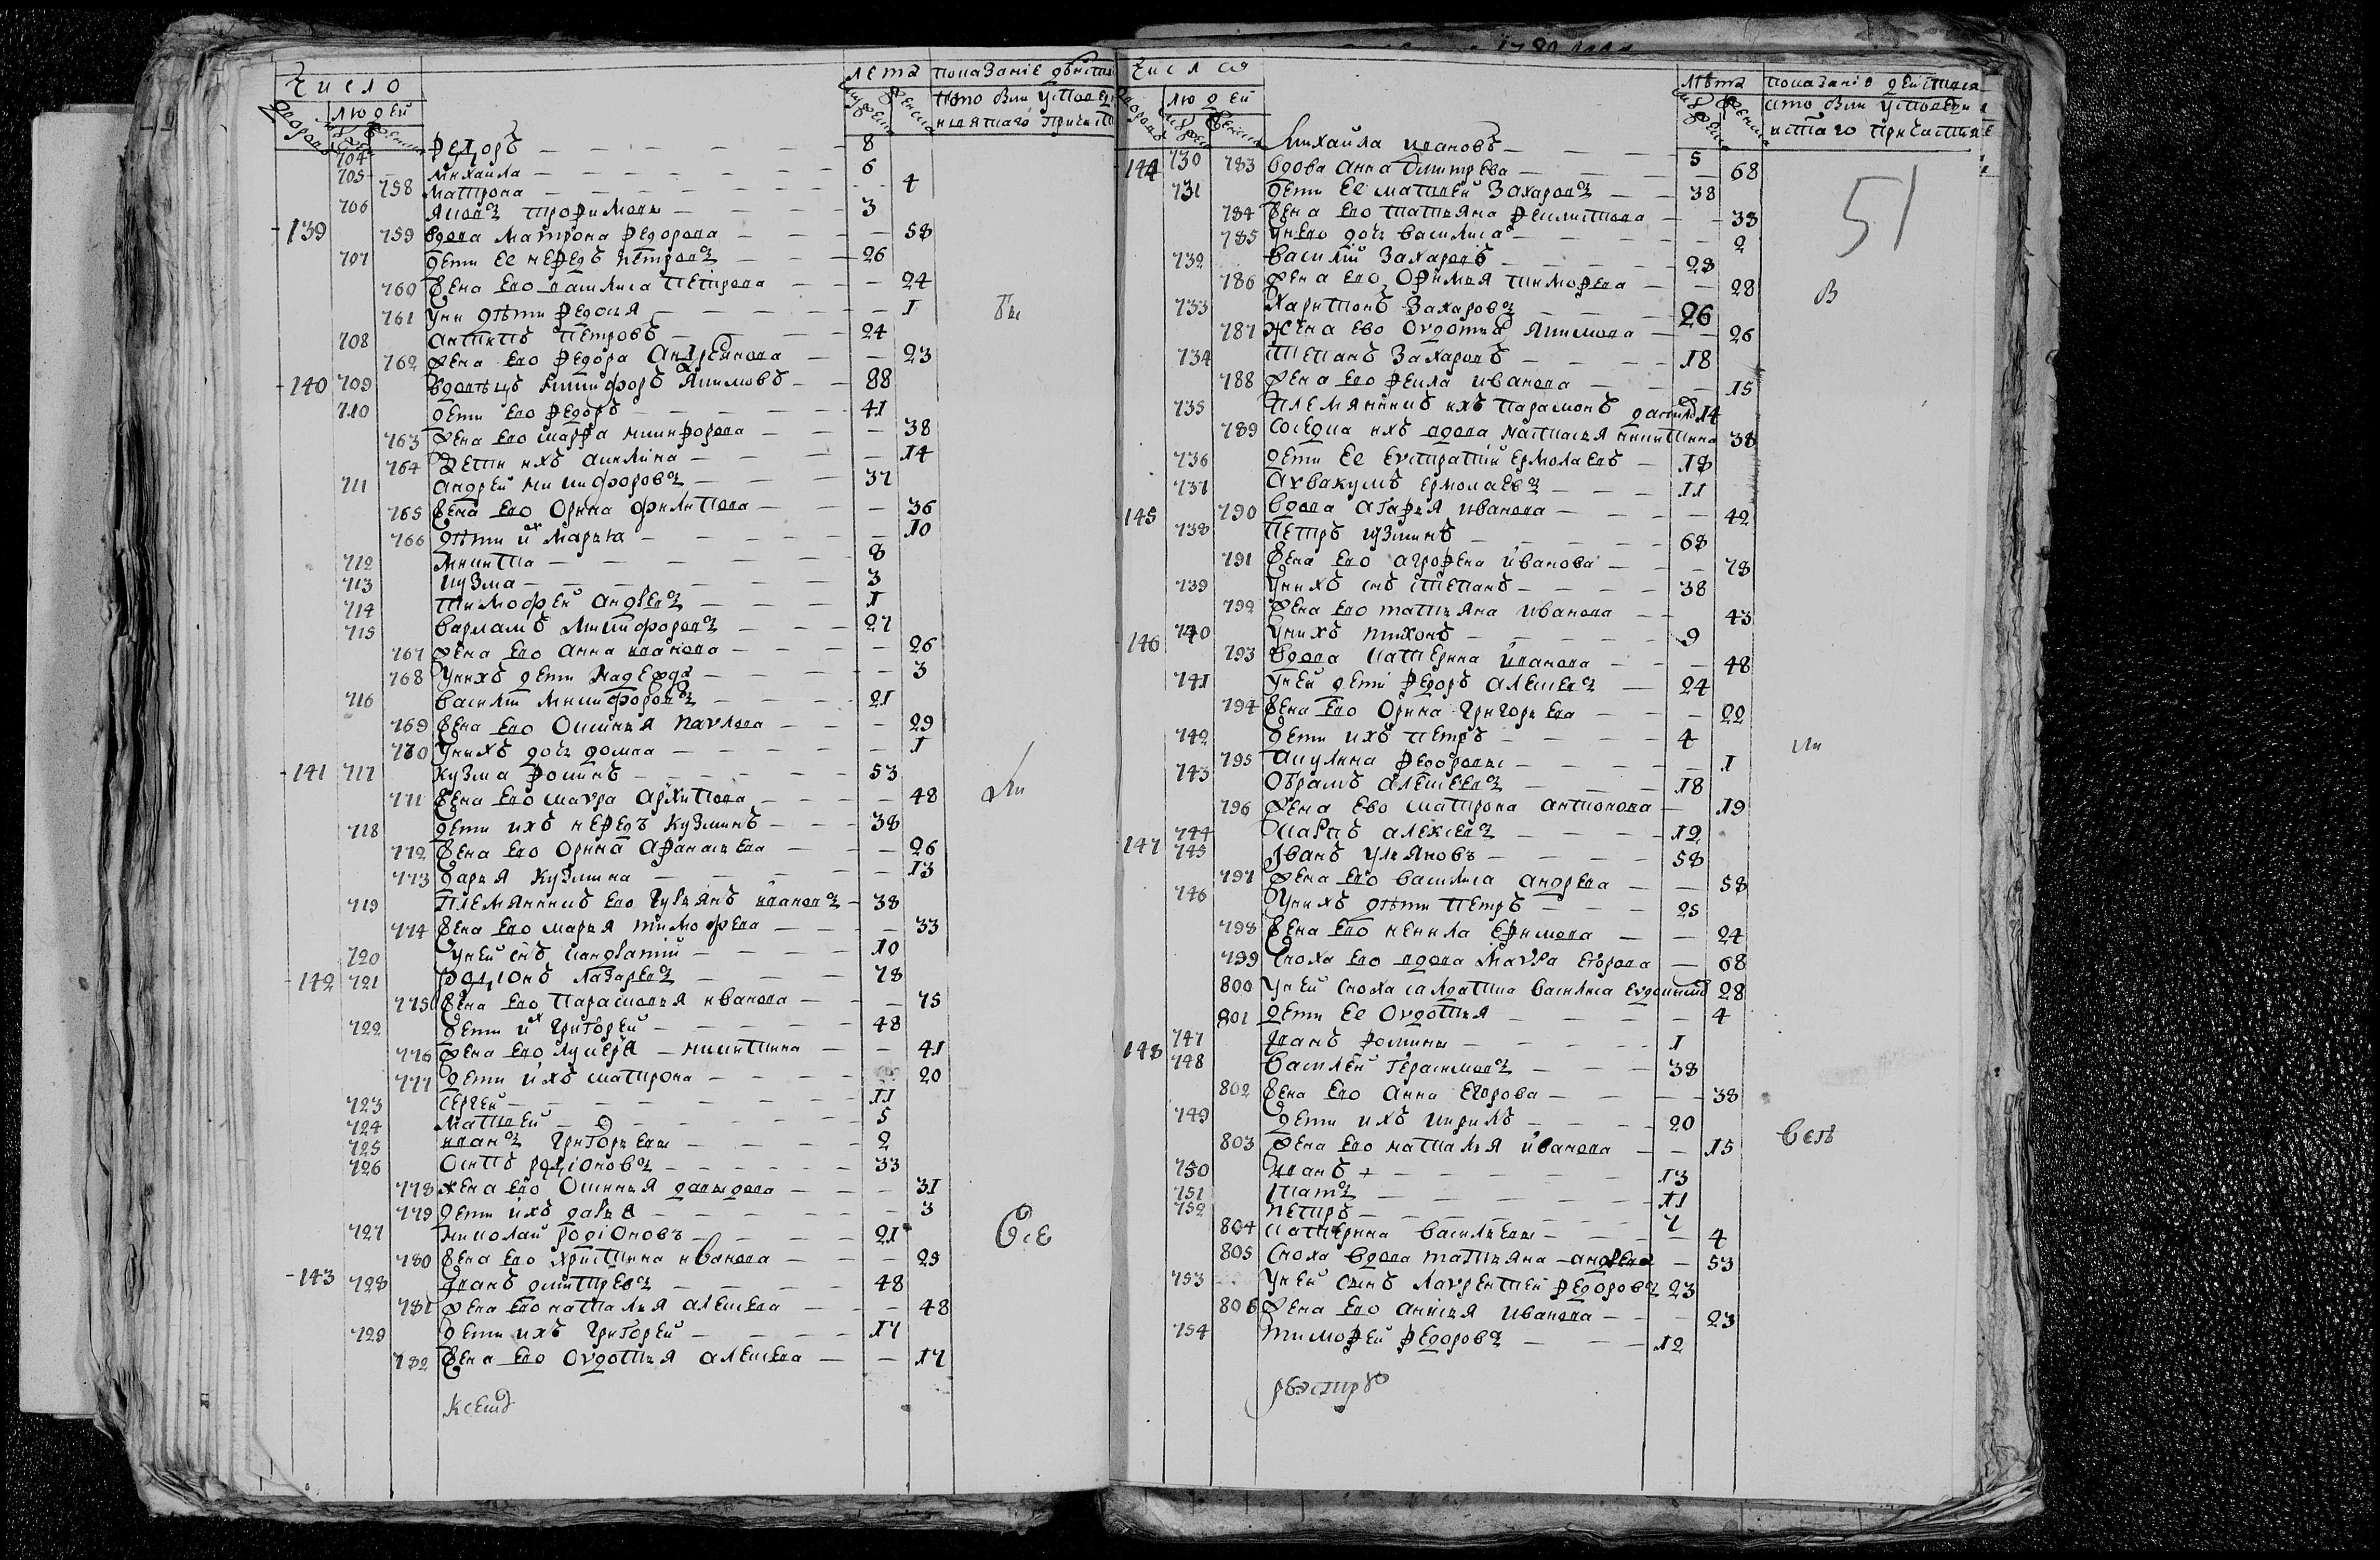 Число
лета показаніе
людей
704 Федоръ 8
705 Михаила 6
758 Матрона 4
706 Яковъ Трофимовы 3
139 759 вдова Матрона Федорова 58
707 дети ее Нефедъ Петровъ 26
760 жена ево Василиса Петрова 24
761 у них дѣти Федосья 1
708 Антипъ Петровъ 24
762 жена ево Федора Андреянова 23
140 709 вдовецъ Никифоръ Якимовъ 88
710 дети ево Федоръ 41
763 жена ево Марфа Никифорова 38
764 дети ихъ Акилина 14
711 Андрей Никифоровъ 37
765 жена ево Орина Филипова 36
766 дѣти их Марья 10
712 Никита 8
713 Кузма 3
714 Тимофей Андреевъ 1
715 Варламъ Никифоровъ 27
767 жена ево Анна Иванова 26
768 у нихъ дети Надежда 3
716 Василій Никифоровъ 21
769 жена ево Оксинья Павлова 29
770 у нихъ дочь Домна 1
141 717 Кузма Фоминъ 53
771 жена ево Мавра Архипова 48
718 дети ихъ Нефедъ Кузминъ 38
772 жена ево Орина Афанасьева 26
773 Дарья Кузмина 13
719 Племянникъ ево Гурьянъ Ивановъ 38
774 жена ево Марья Тимофеева 33
720 у ней снъ Кандратій 10
142 721 Родіонъ Лазаревъ 78
775 жена ево Парасковья Иванова 75
722 дети их Григорей 48
776 жена ево Лукерья Никитина 41
777 дети ихъ Матрона 20
723 Сергей 11
724 Матвей 5
725 Иванъ Григорьевы 2
726 Осипъ Родіоновъ 33
778 жена ево Оксинья Давыдова 31
779 дети ихъ Дарья 3
727 Николай Родіоновъ 21
780 жена ево Христина Иванова 25
143 728 Иванъ Дмитревъ 48
781 жена ево Наталья Алексеева 48
729 дети ихъ Григорей 17
782 жена ево Овдотья Алексеева 17
Все
Числа
лѣта показаніе
людей
51
730 Михайла Ивановъ 5
144 783 вдова Анна Дмитрева 68
731 дети ее Матвей Захаровъ 38
784 жена ево Татьяна Феклистова 38
785 у нево дочь Василиса 2
732 Василій Захаровъ 28
786 жена ево Офимья Тимофеева 28
733 Харитонъ Захаровъ 26
787 жена ево Овдотья Якимова 26
734 Степанъ Захаровъ 18
788 жена ево Фекла Иванова 15
735 Племянникъ ихъ Парамонъ 14
789 соседка ихъ вдова Настасья Никитина 38
736 дети ее Евстратій Ермолаевъ 18
737 Аввакумъ Ермолаевъ 11
145 790 вдова Агафья Иванова 42
738 Петръ Кузминъ 68
791 жена ево Агрофена Иванова 78
739 у нихъ снъ Степанъ 38
792 жена ево Татьяна Иванова 43
740 у нихъ Тихонъ 9
146 793 вдова Катерина Иванова 48
741 у ней дети Федоръ Алексеевъ 24
794 жена ево Орина Григорьева 22
742 дети ихъ Петръ 4
795 Акулина Федоровы 1
743 Обрамъ Алексеевъ 18
796 жена ево Матрона Антонова 19
744 Маркъ Алексеевъ 12
147 745 Іванъ Ульяновъ 58
797 жена ево Василиса Андреева 58
746 у нихъ дѣти Петръ 25
798 жена ево Ненила Ефимова 24
799 сноха ево вдова Мавра Егорова 68
800 у ней сноха салдатка Василиса 28
801 дети ее Овдотья 4
747 Іванъ Фомины 1
148 748 Василей Герасимовъ 38
802 жена ево Анна Егорова 38
749 дети ихъ Кирилъ 20
803 жена ево Наталья Иванова 15
750 Иванъ 13
751 Игнатъ 11
752 Петръ 7
804 Катерина Васильевы 4
805 сноха вдова Татьяна Андреева 53
753 у ней сынъ Лаврентей Федоровъ 23
806 жена ево Анисья Иванова 23
754 Тимофей Федоровъ 12